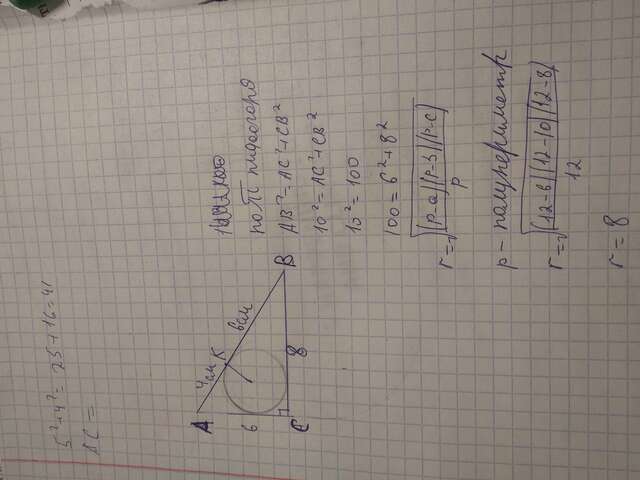 5²+4²= 25+16=41
AC =
A
4см
K
6
6см
C
8
B
по П пифагора
AB²=AC²+CB²
10²=AC²+CB²
10²=100
100=6²+8²
r=√((p-a)(p-b)(p-c)/p)
p - полупериметр
r=√((12-6)(12-10)(12-8)/12)
r=8